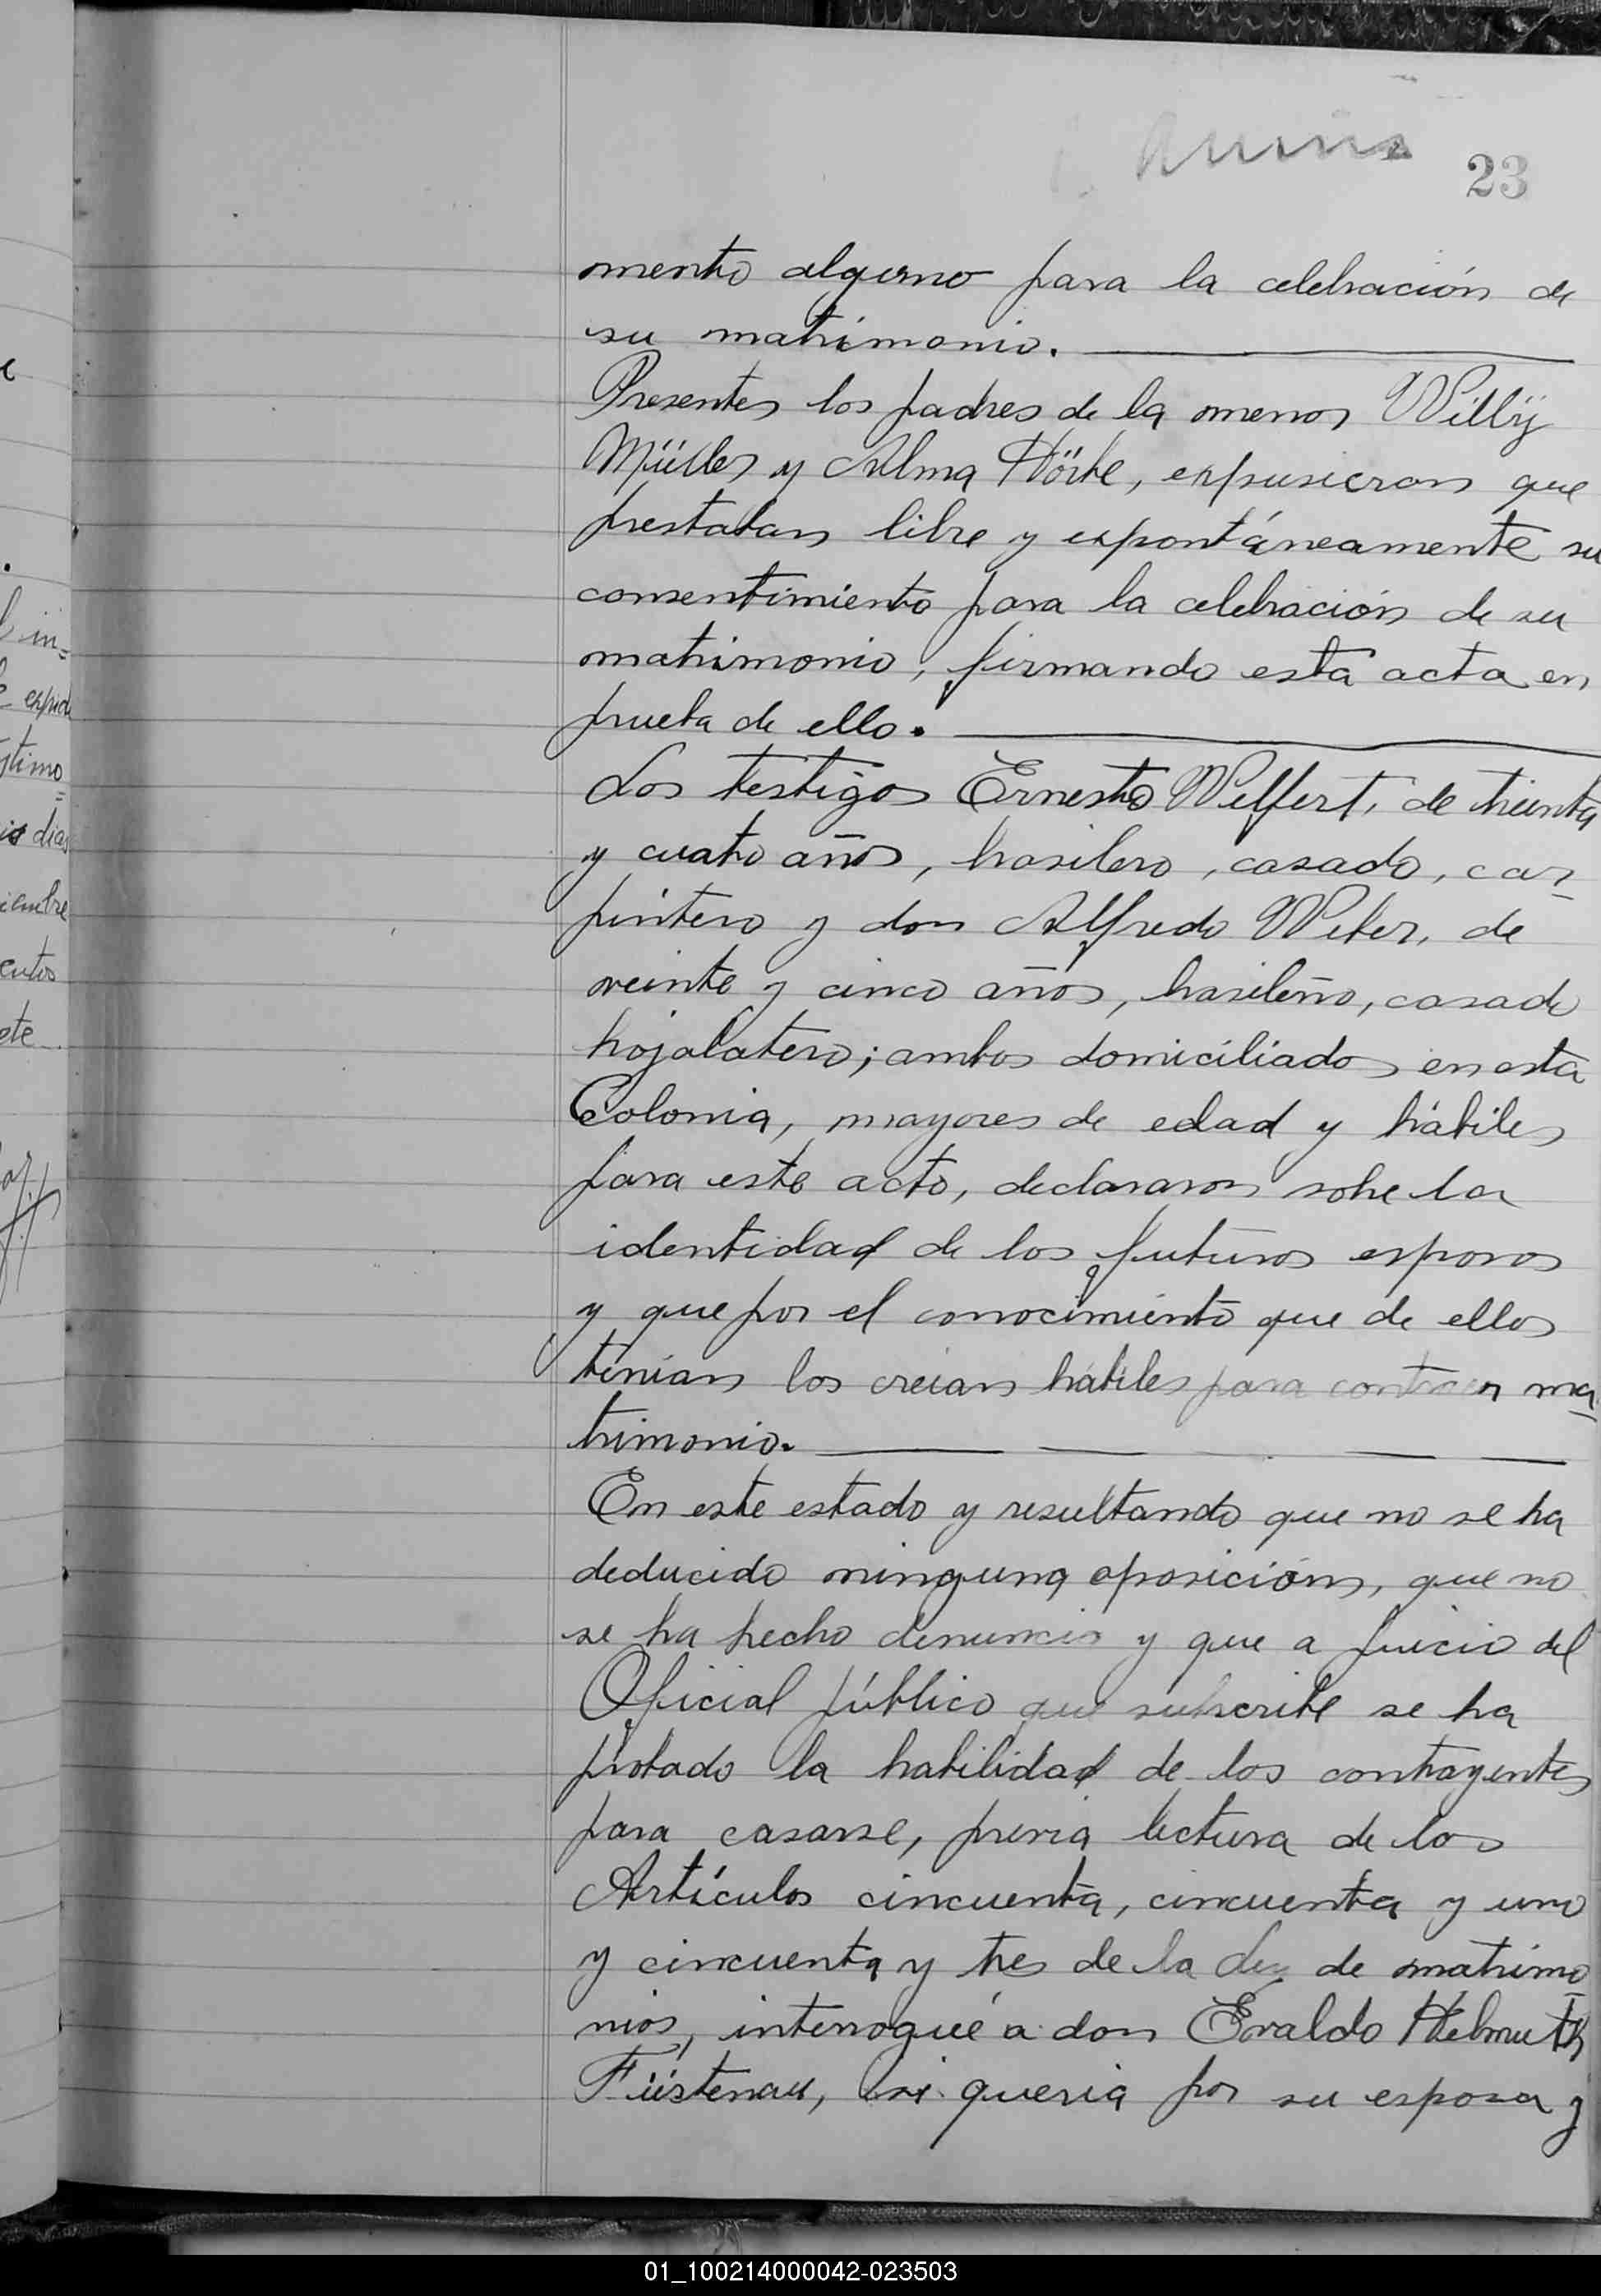 23
mento alguno para la celebración de
su matrimonio.
Presentes los padres de la menor Willÿ
Müller y Alma Hörbe, expusieron que
prestaban libre y expontáneamente su
consentimiento para la celebración de su
matrimonio, firmando esta acta en
prueba de ello.
Los testigos Ernesto Welfert, de treinta
y cuatro años, brasilero, casado, car-
pintero y don Alfredo Weber, de
veinte y cinco años, brasileño, casado
hojalatero; ambos domiciliados en esta
Colonia, mayores de edad y hábiles
para este acto, declararon sobre la
identidad de los futuros esposos
y que por el conocimiento que de ellos
tenían los creían hábiles para contraer ma-
trimonio.
En este estado y resultando que no se ha
deducido ninguna oposición, que no
se ha hecho denuncia y que a juicio del
Oficial público que subscribe se ha
probado la habilidad de los contrayentes
para casarse, previa lectura de los
Artículos cincuenta, cincuenta y uno
y cincuenta y tres de la Ley de matrimo-
nios, interrogué a don Evaldo Helmuth
Füstenau, si quería por su esposa y
in-
expide
días
iembre
entos
ete
01_100214000042-023503